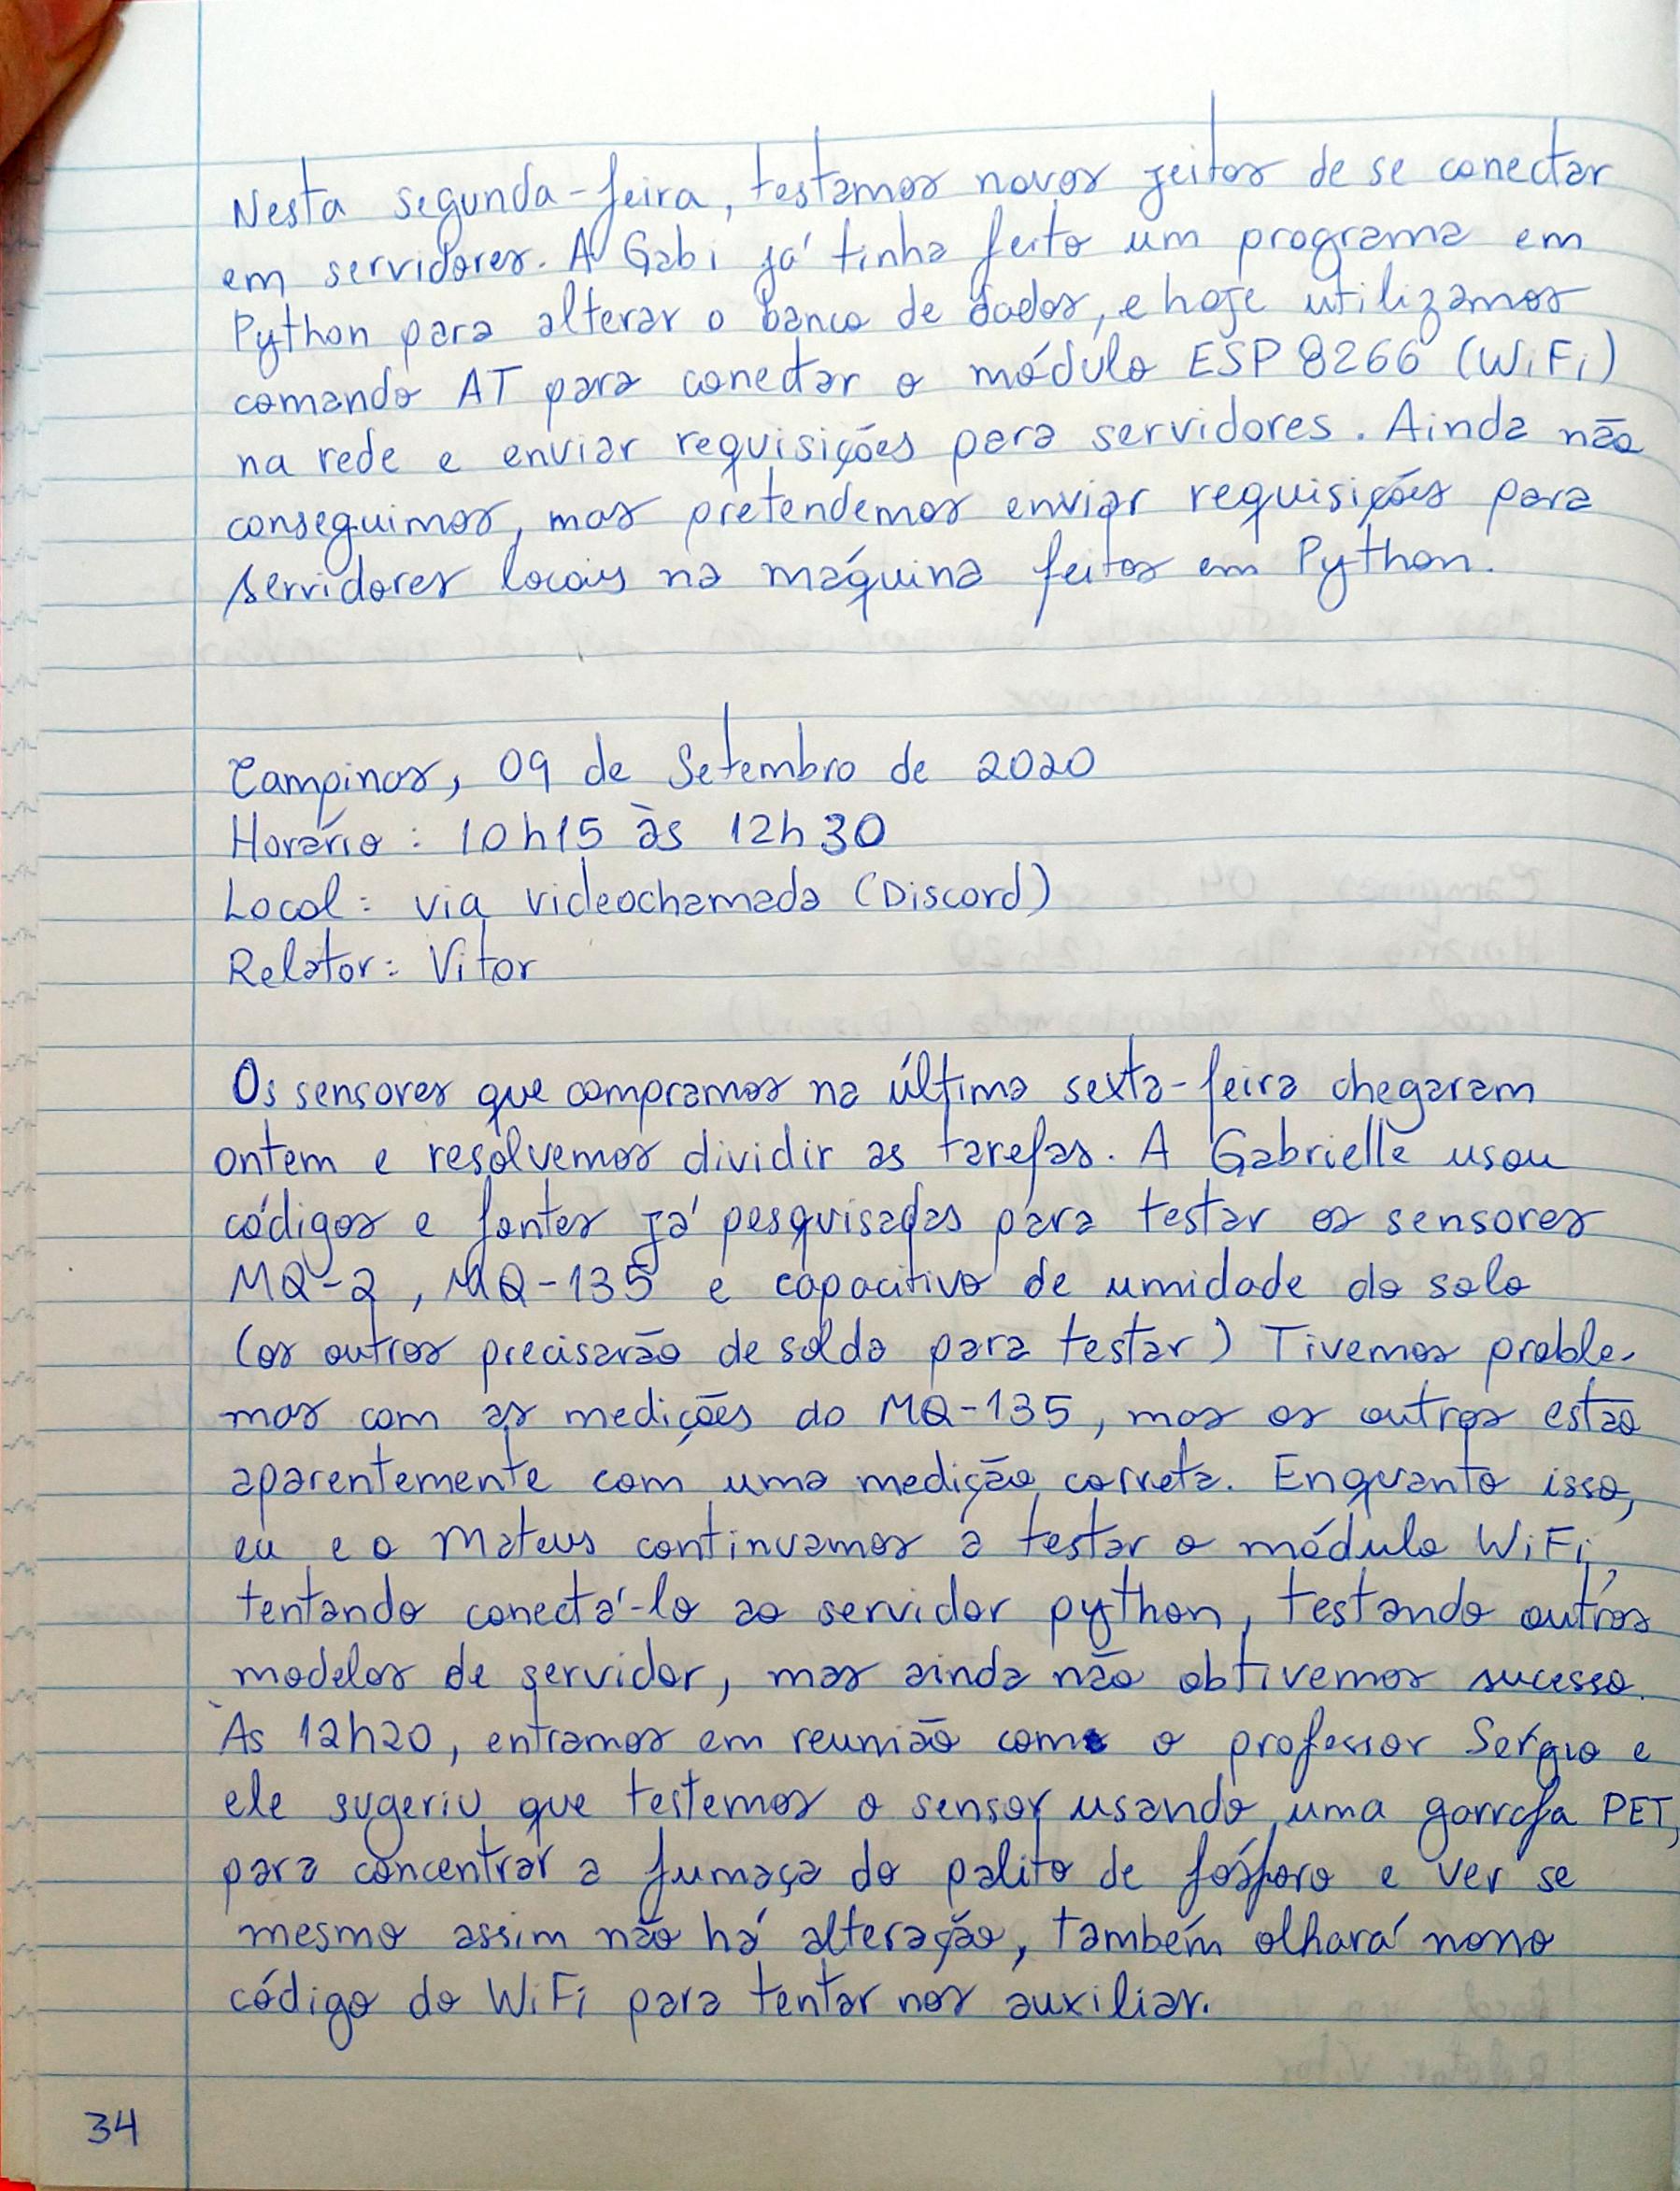 Nesta segunda-feira, testamos novos jeitos de se conectar
em servidores. A Gabi já tinha feito um programa em
Python para alterar o banco de dados, e hoje utilizamos
comando AT para conectar o módulo ESP 8266 (WiFi)
na rede e enviar requisições para servidores. Ainda não
conseguimos, mas pretendemos enviar requisições para
servidores locais na máquina feitos em Python.
Campinas, 09 de Setembro de 2020
Horário: 10h15 às 12h30
Local: via videochamada (Discord)
Relator: Vitor
Os sensores que compramos na última sexta-feira chegaram
ontem e resolvemos dividir as tarefas. A Gabrielle usou
códigos e fontes já pesquisadas para testar os sensores
MQ-2, MQ-135 e capacitivo de umidade do solo
(os outros precisarão de solda para testar) Tivemos proble-
mas com as medições do MQ-135, mas os outros estão
aparentemente com uma medição correta. Enquanto isso,
eu e o Mateus continuamos a testar o módulo WiFi,
tentando conectá-lo ao servidor python, testando outros
modelos de servidor, mas ainda não obtivemos sucesso.
Às 12h20, entramos em reunião com o professor Sergio e
ele sugeriu que testemos o sensor usando uma garrafa PET,
para concentrar a fumaça do palito de fósforo e ver se
mesmo assim não há alteração, também olhará nosso
código do WiFi para tentar nos auxiliar.
34